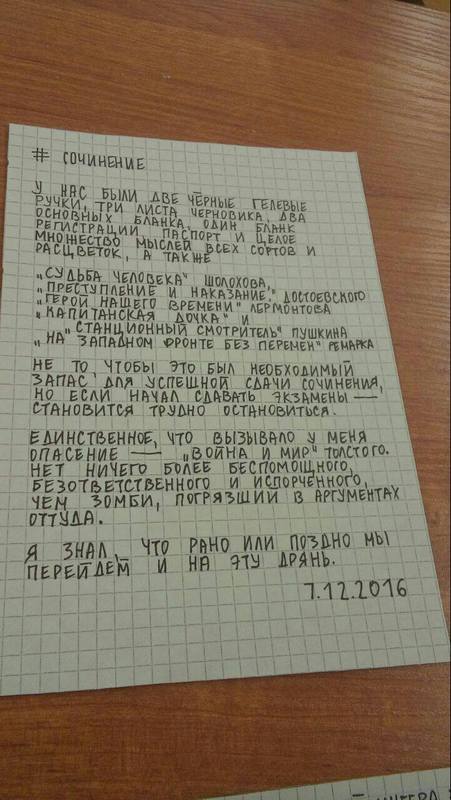 # СОЧИНЕНИЕ
У НАС БЫЛИ ДВЕ ЧЁРНЫЕ ГЕЛЕВЫЕ
РУЧКИ, ТРИ ЛИСТА ЧЕРНОВИКА, ДВА
ОСНОВНЫХ БЛАНКА, ОДИН БЛАНК
РЕГИСТРАЦИИ, ПАСПОРТ И ЦЕЛОЕ
МНОЖЕСТВО МЫСЛЕЙ ВСЕХ СОРТОВ И
РАСЦВЕТОК, А ТАКЖЕ
„СУДЬБА ЧЕЛОВЕКА" ШОЛОХОВА,
„ПРЕСТУПЛЕНИЕ И НАКАЗАНИЕ," ДОСТОЕВСКОГО
„ГЕРОЙ НАШЕГО ВРЕМЕНИ" ЛЕРМОНТОВА
„КАПИТАНСКАЯ ДОЧКА" И
„СТАНЦИОННЫЙ СМОТРИТЕЛЬ" ПУШКИНА
„НА ЗАПАДНОМ ФРОНТЕ БЕЗ ПЕРЕМЕН" РЕМАРКА
НЕ ТО, ЧТОБЫ ЭТО БЫЛ НЕОБХОДИМЫЙ
ЗАПАС ДЛЯ УСПЕШНОЙ СДАЧИ СОЧИНЕНИЯ,
НО ЕСЛИ НАЧАЛ СДАВАТЬ ЭКЗАМЕНЫ —
СТАНОВИТСЯ ТРУДНО ОСТАНОВИТЬСЯ.
ЕДИНСТВЕННОЕ, ЧТО ВЫЗЫВАЛО У МЕНЯ
ОПАСЕНИЕ — „ВОЙНА И МИР" ТОЛСТОГО.
НЕТ НИЧЕГО БОЛЕЕ БЕСПОМОЩНОГО,
БЕЗОТВЕТСТВЕННОГО И ИСПОРЧЕННОГО,
ЧЕМ ЗОМБИ, ПОГРЯЗШИЙ В АРГУМЕНТАХ
ОТТУДА.
Я ЗНАЛ, ЧТО РАНО ИЛИ ПОЗДНО МЫ
ПЕРЕЙДЕМ И НА ЭТУ ДРЯНЬ.
7.12.2016